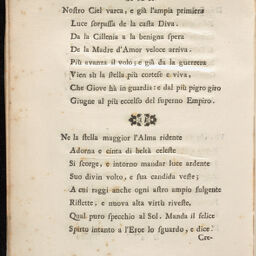 Nostro Ciel varca, e già l'ampia primiera
Luce sorpassa de la casta Diva.
Da la Cillenia a la benigna spera
De la Madre d'Amor veloce arriva.
Più avanza il volo; e già da la guerrera
Vien sù la stella più cortese e viva,
Che Giove hà in guardia: e dal più pigro giro
Giugne al più eccelso del superno Empiro.
Ne la stella maggior l'Alma ridente
Adorna e cinta di beltà celeste
Si scorge, e intorno mandar luce ardente
Suo divin volto, e sua candida veste;
A cui raggi anche ogni astro ampio fulgente
Riflette, e nuova alta virtù riveste,
Qual puro specchio al Sol. Manda il felice
Spirto intanto a l'Eroe lo sguardo, e dice:
Cre-